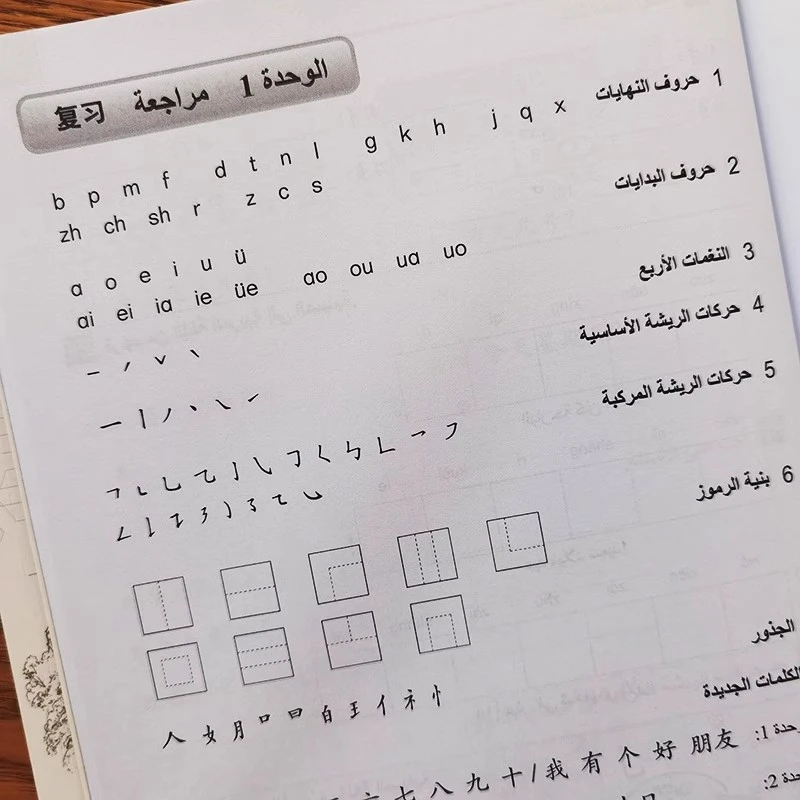 الوحدة 1 مراجعة 复习
1 حروف النهايات
b p m f d t n l g k h j q x
zh ch sh r z c s
2 حروف البدايات
ɑ o e i u ü
ɑi ei iɑ ie üe ɑo ou uɑ uo
3 النغمات الأربع
ˉ ˊ ˇ ˋ
4 حركات الريشة الأساسية
一 丨 丿 丶 ㇏ ㇀
5 حركات الريشة المركبة
6 بنية الرموز
الجذور
人 女 月 口 日 白 王 亻 礻 忄
الكلمات الجديدة
七 八 九 十/我 有 个 好 朋友